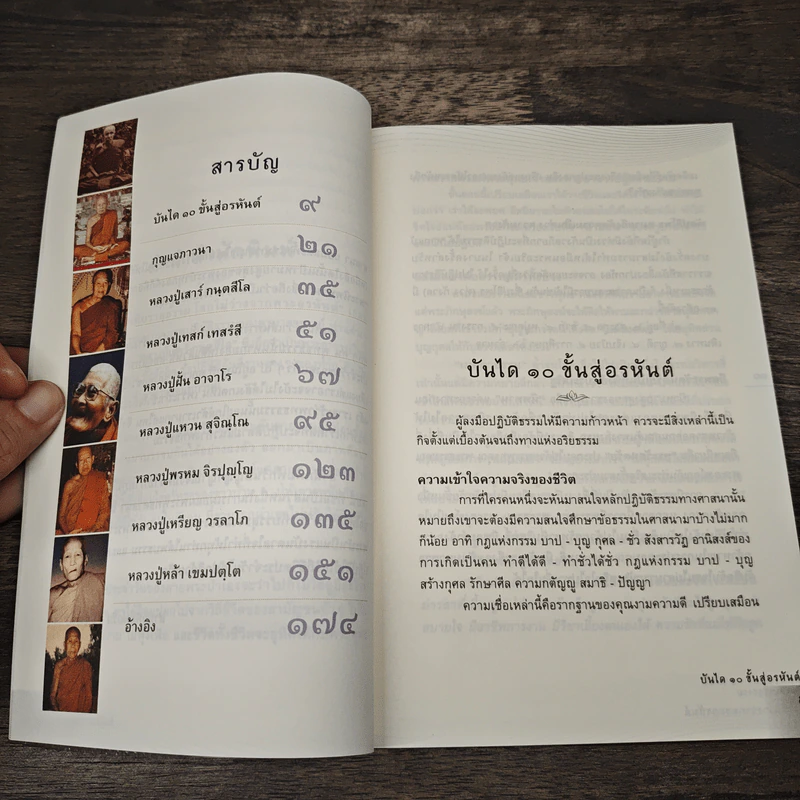 สารบัญ
บันได ๑๐ ขั้นสู่อรหันต์ ๙
กุญแจภาวนา ๒๑
หลวงปู่เสาร์ กนฺตสีโล ๓๕
หลวงปู่เทสก์ เทสรํสี ๕๑
หลวงปู่ฝั้น อาจาโร ๖๗
หลวงปู่แหวน สุจิณฺโณ ๙๕
หลวงปู่พรหม จิรปุญฺโญ ๑๒๓
หลวงปู่เหรียญ วรลาโภ ๑๓๕
หลวงปู่หล้า เขมปตฺโต ๑๕๑
อ้างอิง ๑๗๔
บันได ๑๐ ขั้นสู่อรหันต์
ผู้ลงมือปฏิบัติธรรมให้มีความก้าวหน้า ควรจะมีสิ่งเหล่านี้เป็น
กิจตั้งแต่เบื้องต้นจนถึงทางแห่งอริยธรรม
ความเข้าใจความจริงของชีวิต
การที่ใครคนหนึ่งจะหันมาสนใจหลักปฏิบัติธรรมทางศาสนานั้น
หมายถึงเขาจะต้องมีความสนใจศึกษาข้อธรรมในศาสนามาบ้างไม่มาก
ก็น้อย อาทิ กฎแห่งกรรม บาป - บุญ กุศล - ชั่ว สังสารวัฏ อานิสงส์ของ
การเกิดเป็นคน ทำดีได้ดี - ทำชั่วได้ชั่ว กฎแห่งกรรม บาป - บุญ
สร้างกุศล รักษาศีล ความกตัญญู สมาธิ - ปัญญา
ความเชื่อเหล่านี้คือรากฐานของคุณงามความดี เปรียบเสมือน
บันได ๑๐ ขั้นสู่อรหันต์